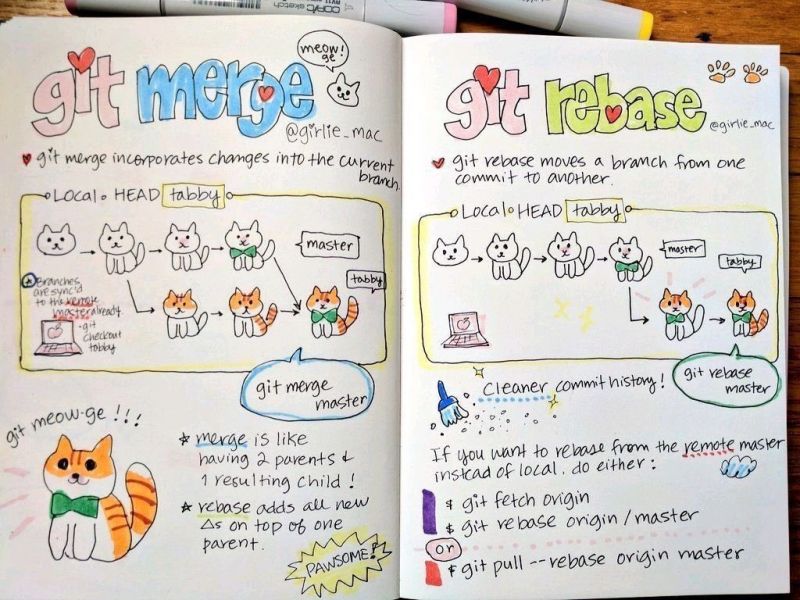 COPIC sketch
git merge
meow!
ge
@girlie_mac
git merge incorporates changes into the current
branch.
Local HEAD tabby
master
tabby
Branches
are sync'd
to the remote
master already.
git
checkout
tabby
git merge
master
git meow-ge !!!
merge is like
having 2 parents &
1 resulting child!
rebase adds all new
Δs on top of one
parent.
PAWSOME!
git rebase
@girlie_mac
git rebase moves a branch from one
commit to another.
Local HEAD tabby
master
tabby
git rebase
master
Cleaner commit history!
If you want to rebase from the remote master
instead of local. do either:
$ git fetch origin
$ git rebase origin/master
or
$ git pull --rebase origin master